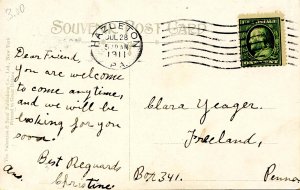 3.00
SOUVENIR POST CARD
HAZLETON
JUL 28
1911
PA.
Dear Friend,
You are welcome
to come anytime,
and we will be
looking for you
soon.
Best Reguards
Christine
Ans.
Clara Yeager.
Freeland,
Box 341. Penna